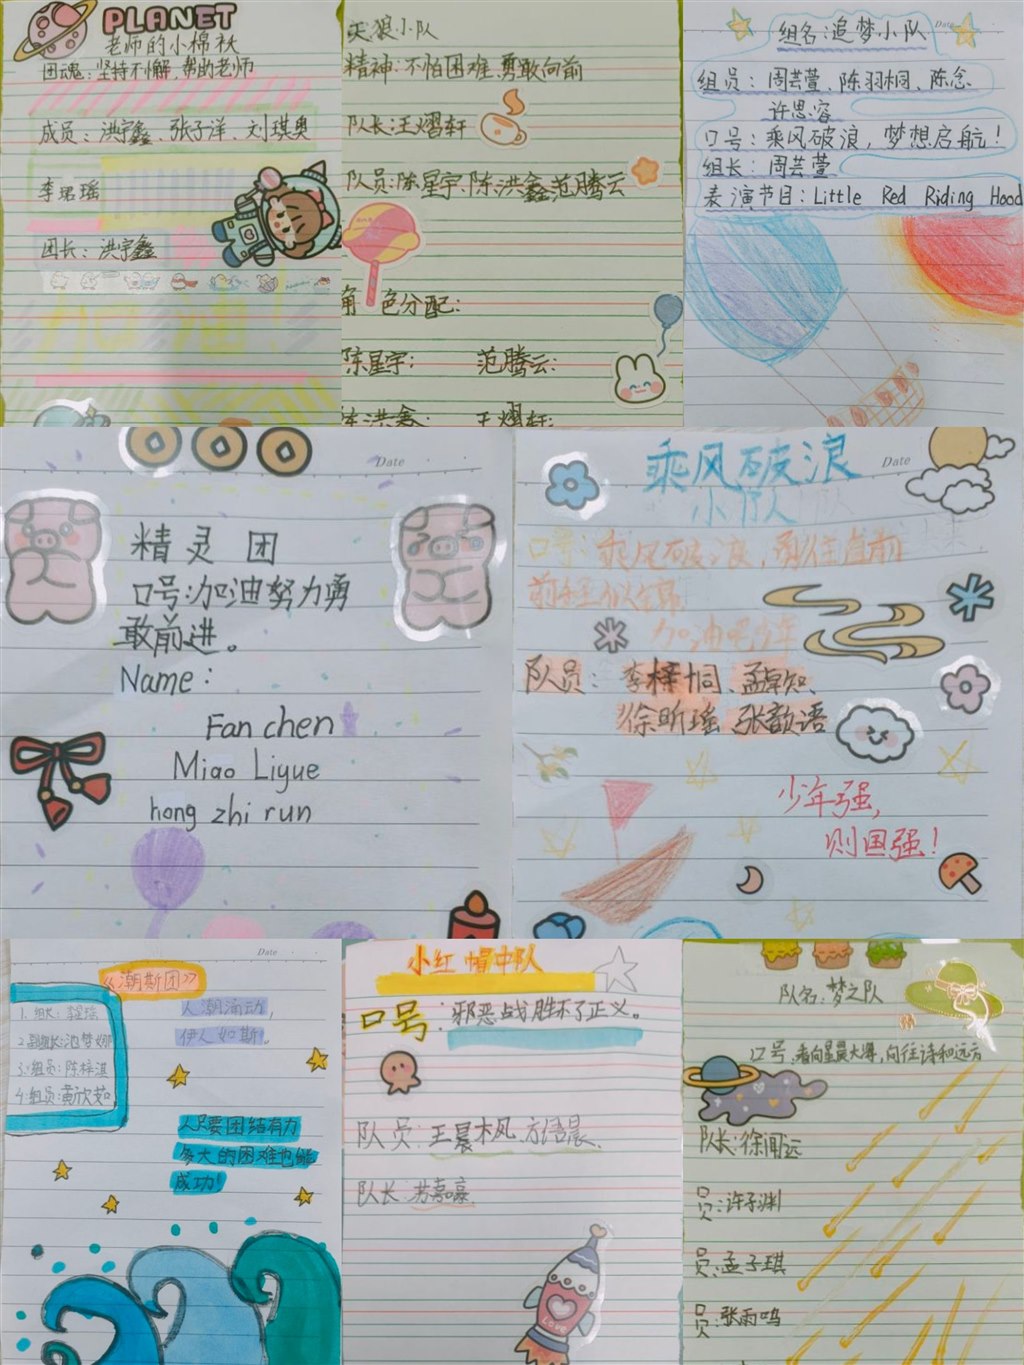 PLANET
老师的小棉袄
团魂：坚持不懈，帮助老师
成员：洪宇鑫、张子洋、刘琪奥
李珺瑶
团长：洪宇鑫
天狼小队
精神：不怕困难，勇敢向前
队长：王熠轩
队员：陈星宇、陈洪鑫、范腾云
角色分配：
陈星宇：范腾云：
陈洪鑫：王熠轩：
Date
组名：追梦小队
组员：周芸萱、陈羽桐、陈念
许思容
口号：乘风破浪，梦想启航！
组长：周芸萱
表演节目：Little Red Riding Hood
Date
精灵团
口号：加油努力勇
敢前进。
Name：
Fan chen
Miao Liyue
hong zhi run
Date
乘风破浪
小队
口号：乘风破浪，勇往直前
前程似锦
加油吧少年
队员：李梓桐、孟卓知、
徐昕瑶 张歆语
少年强，
则国强！
Date
《潮斯团》
人潮涌动，
伊人如斯。
1.组长：
2.副组长：池梦娜
3.组员：陈梓淇
4.组员：黄欣茹
人只要团结有力
多大的困难也能
成功！
小红帽中队
口号：邪恶战胜不了正义。
队员：王晨木风、方语晨、
队长 苏嘉豪
Love
队名：梦之队
口号：看向星晨大海，向往诗和远方
队长：徐闻远
员：许子渊
员：孟子琪
员：张雨鸣